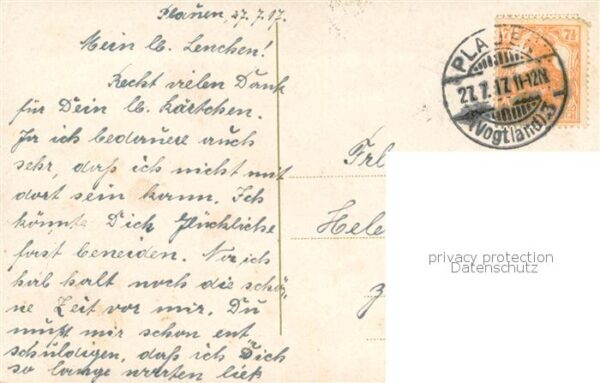 Plauen, 27.7.17.
Mein lb. Lenchen!
Recht vielen Dank
für Dein lb. Kärtchen.
Ja ich bedauere auch
sehr, daß ich nicht mit
dort sein kann. Ich
könnte Dich Glückliche
fast beneiden. Na, ich
hab halt noch die schö-
ne Zeit vor mir. Du
mußt mir schon ent
schuldigen, daß ich Dich
so lange warten ließ
PLAUEN
27.7.17.11-12N
(Vogtland).3
7½
Frl.
Hele
privacy protection
Datenschutz